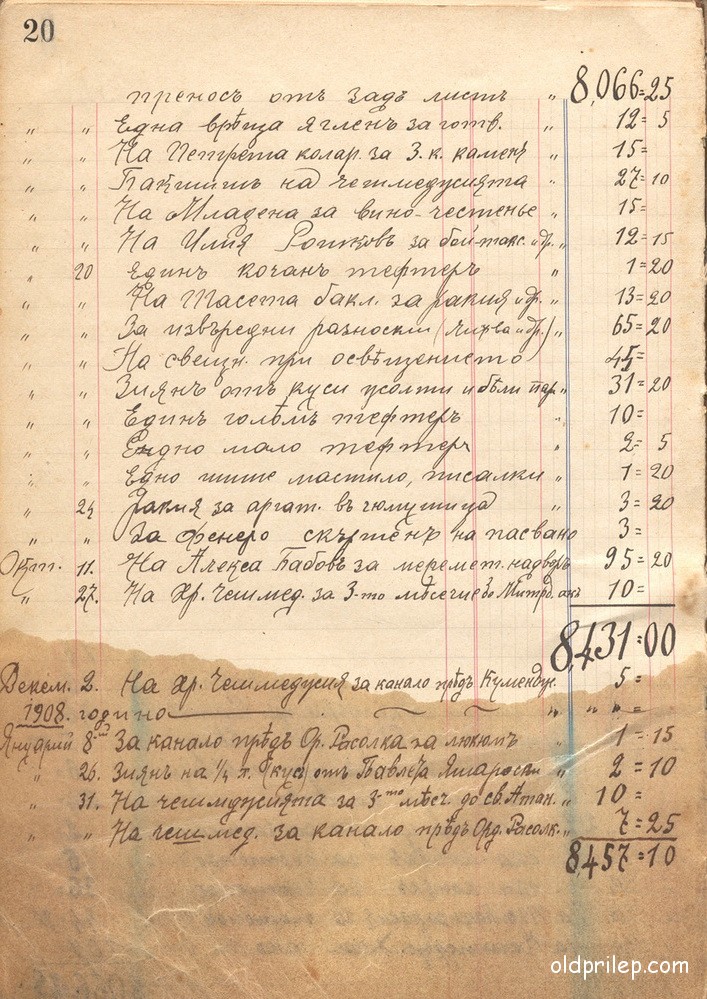 20
преносъ отъ задъ листъ " 8,066=25
" " Една врѣща ягленъ за готв. " 12=5
" " На Петрета колар. за 3. к. каменя 15=
" " Бакшишъ на чешмеджията " 27=10
" " На Младена за вино-честенье " 15=
" " На Илия Рошковъ за бои-такс. и др. " 12=15
" 20 Единъ кочанъ тефтеръ " 1=20
" " На Тасета бакл. за ракия и др. " 13=20
" " За извъредни разноски ( и др.) " 65=20
" " На свещн. при освѣщението 45=
" " Зиянъ отъ куси и бѣли пар " 31=20
" " Единъ голѣмъ тефтеръ " 10=
" " Eдно мало тефтеръ " 2=5
" " Едно шише мастило, писалки " 1=20
" 24 Ракия за аргат. въ " 3=20
" " За фенеро скършенъ на пасвано 3=
Окт. 11. На Алекса Бабовъ за меремет. надворъ 95=20
" 27. На Хр. Чешмед. за 3-то мѣсечие до Митро 10=
8,431=00
Декем. 2. На Хр. Чешмеджия за канало прѣдъ 5=
1908. годино " " " =
Януарий 8 За канало прѣдъ Ор. Расолка за люкюмъ " 1=15
" 26. Зиянъ на 1/4 л. (куса) отъ Павлета " 2=10
" 31. На чешмеджията за 3-то мѣсч. до св. Атан. " 10=
" " На чешмед. за канало прѣдъ Орд. Расолк. " 7=25
8,457=10
oldprilep.com